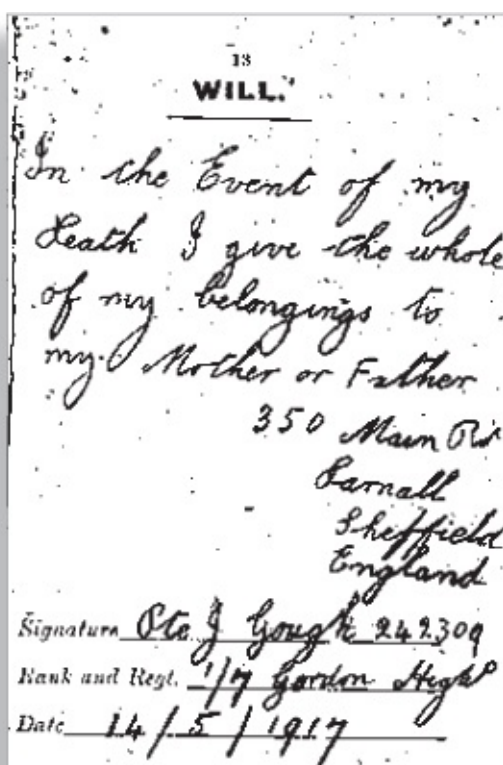 13
WILL.
In the Event of my
Death I give the whole
of my belongings to
my Mother or Father
350 Main Rd
Darnall
Sheffield
England
Signature Pte J Gough 242309
Rank and Regt. 1/7 Gordon Highrs
Date 14/5/1917